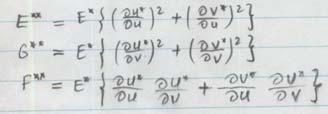 E** = E* { (∂u*/∂u)² + (∂v*/∂u)² }
G** = E* { (∂u*/∂v)² + (∂v*/∂v)² }
F** = E* { ∂u*/∂u ∂u*/∂v + ∂v*/∂u ∂v*/∂v }